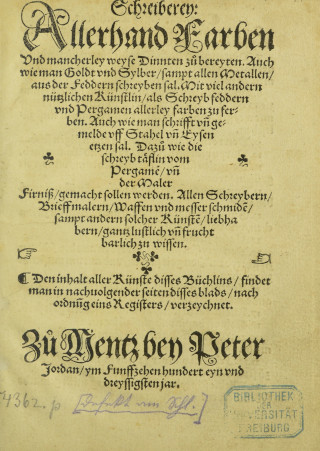 Schreiberey:
Allerhand Farben
Vnd mancherley weyse Dinnten zů bereyten. Auch
wie man Goldt vnd Sylber / sampt allen Metallen /
aus der Feddern schreyben sal. Mit viel andern
nützlichen Künstlin / als Schreyb feddern
vnd Pergamen allerley farben zu fer-
ben. Auch wie man schrifft vñ ge-
melde vff Stahel vñ Eysen
etzen sal. Dazů wie die
schreyb täflin vom
Pergamẽ / vñ
der Maler
Firniß / gemacht sollen werden. Allen Schreybern /
Brieff malern / Waffen vnd messer schmidẽ /
sampt andern solcher Künstẽ / liebha
bern / gantz lustlich vñ frucht
barlich zu wissen.
¶ Den inhalt aller Künste disses Büchlins / findet
man in nachuolgender seiten disses blads / nach
ordnũg eins Registers / verzeychnet.
Zů Mentz bey Peter
Jordan / ym Funffzehen hundert eyn vnd
dreyssigsten jar.
BIBLIOTHEK
DER
UNIVERSITÄT
FREIBURG